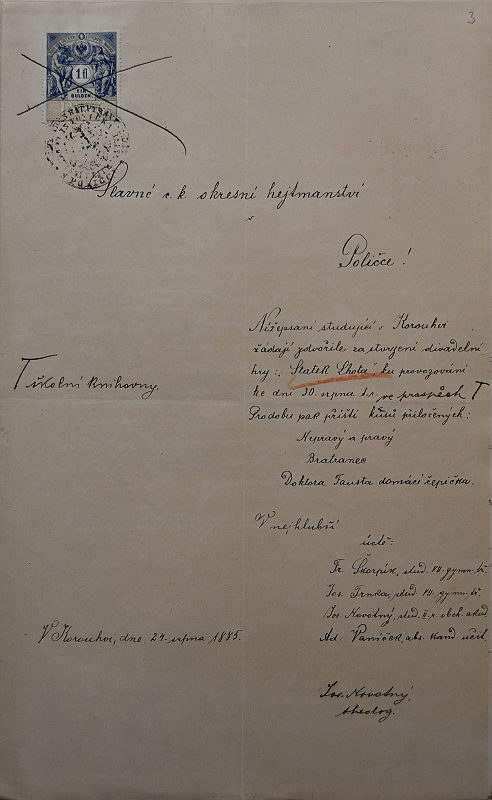 3
1 fl
EIN
GULDEN
Slavné c. k. okresní hejtmanství
v
Poličce!
Nížepsaní studující v Korouhvi
žádají zdvořile za stvrzení divadelní
hry: „Statek Lhota" ku provozování
ke dni 30. srpna t. r. ve prospěch T
T školní knihovny.
Pro dobu pak příští kusů přiločených:
Nepravý a pravý
Bratranec
Doktora Fausta domácí čepička.
V nejhlubší
úctě:
Fr. Škorpík, stud. VII. gymn. tř.
Jos. Trnka, stud. VII. gymn. tř.
Jos. Novotný, stud. II. r. obch. akad.
Ad. Vaníček, abs. kand. učit.
V Korouhvi, dne 24. srpna 1885.
Jos. Novotný,
theolog.